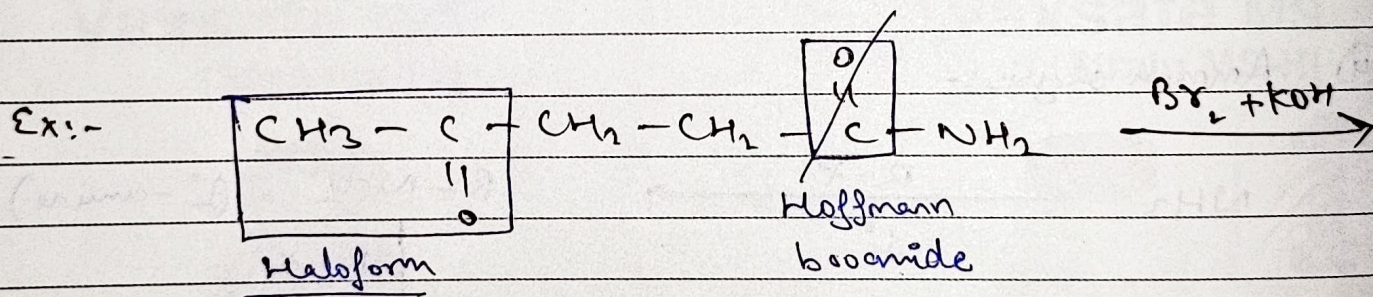 O
||
Ex:- CH3 - C - CH2 - CH2 - C - NH2 Br2 + KOH →
||
O
Haloform Hoffmann
booamide